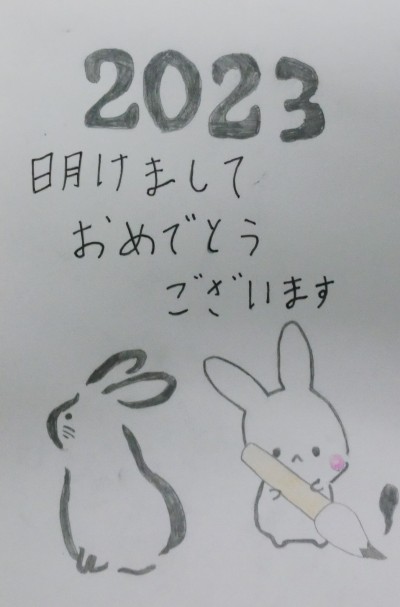 2023
明けまして
おめでとう
ございます